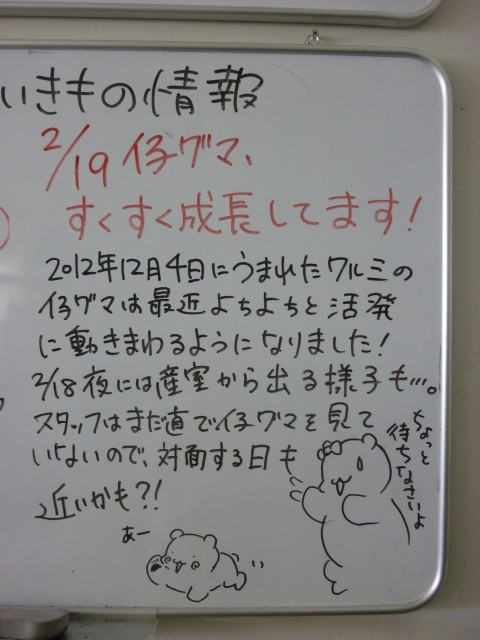 いきもの情報
2/19 仔グマ、
すくすく成長してます!
2012年12月4日にうまれたワルミの
仔グマは最近よちよちと活発
に動きまわるようになりました!
2/18夜には産室から出る様子も…。
スタッフはまだ直で仔グマを見て
いないので、対面する日も
近いかも?!
ちょっと
待ちなさいよ
あー